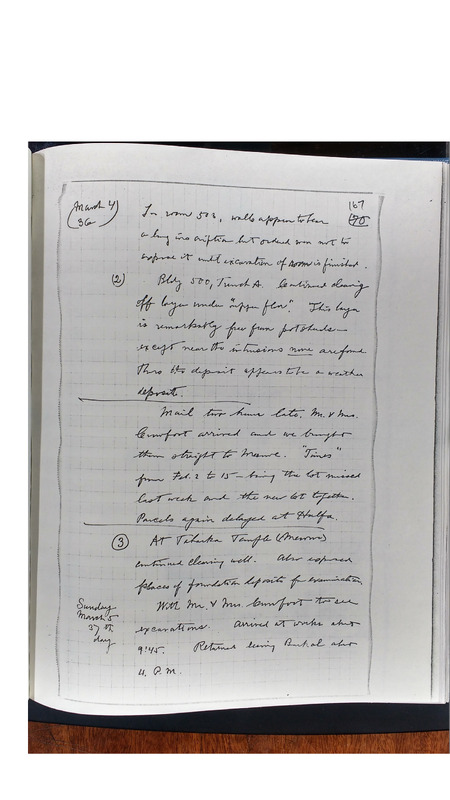 March 4
(36
167
In room 503, walls appear to bear
a long inscription but ordered men not to
expose it until excavation of room is finished.
(2) Bldg 500, Trench A. Continued clearing
off layer under "upper floor". This layer
is remarkably free from potsherds—
except near the intrusions none are found.
Thus the deposit appears to be a weather
deposit.
Mail two hours late. Mr. & Mrs.
Cumfort arrived and we brought
them straight to Merowe. "Times"
from Feb. 2 to 15 — being the lot missed
last week and the new lot together.
Parcels again delayed at Halfa.
(3) At Teharka Temple (Merowe)
continued clearing well. Also exposed
places of foundation deposits for examination
With Mr. & Mrs Cumfort to see
excavations. Arrived at works about
9:45. Returned leaving Barkal about
P.M.
Sunday
March 5
37th
day